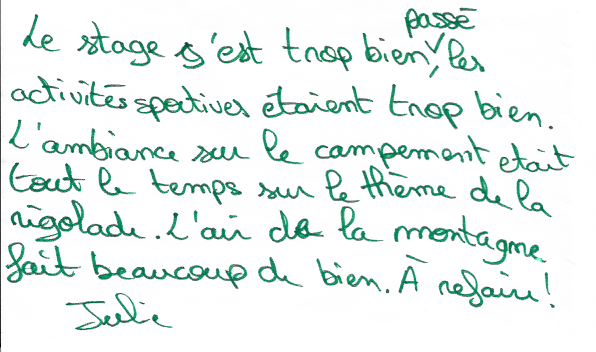 Le stage s'est trop bien passé, les
activités sportives étaient trop bien.
L'ambiance sur le campement etait
tout le temps sur le thème de la
rigolade. L'air de la montagne
fait beaucoup de bien. À refaire!
Julie